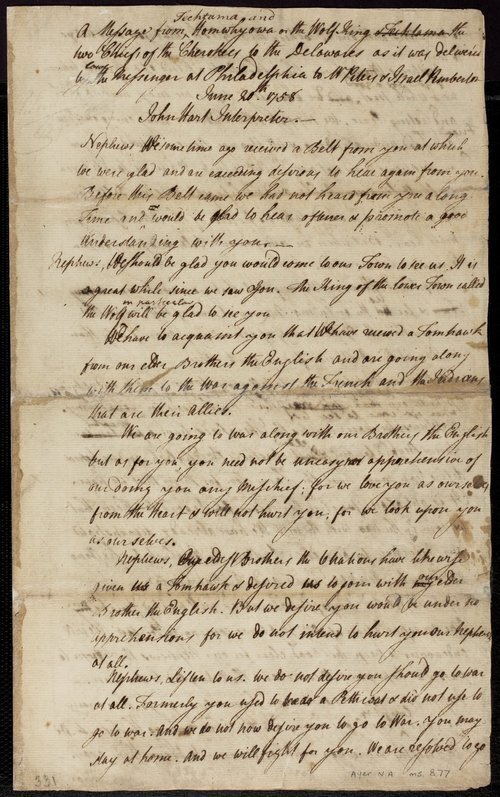 Techtama and
A Message from, Homwhyowa or the Wolf King & Techtama the
two Chiefs of the Cherokees to the Delawares as it was delivered
by the Messenger at Philadelphia to Mr Peters & Israel Pemberton
June 20th 1758
John Hart Interpreter.—
Nephews We sometime ago received a Belt from you at which
we were glad and are exceeding desirous to hear again from you.
Before this Belt came we had not heard from you a long
time and would be glad to hear oftener & promote a good
understanding with you.—
Nephews, We should be glad you would come to our Town to see us. It is
a great while since we saw you. The King of the lower Town called
in particular
the Wolf will be glad to see you
We have to acquaint you that We have received a Tomhawk
from our elder Brothers the English and are going along
with them to the War against the French and the Indians
that are their Allies.
We are going to war along with our Brothers the English
but as for you, you need not be uneasy or apprehensive of
our doing you any Mischief; for we love you as ourselves
from the Heart & will not hurt you, for we look upon you
as our selves.
Nephews, Our eldest Brothers the Nations have likewise
given us a Tomhawk & desired us to join with our elder
Brother the English. But we desire you would be under no
apprehensions for we do not intend to hurt you our Nephews
at all.
Nephews, Listen to us. we do not desire you should go to war
at all. Formerly you used to wear a Petticoat & did not use to
go to war. and we do not now desire you to go to War. You may
stay at home. and we will fight for you. We are resolved to go
331
Ayer N.A. ms. 877